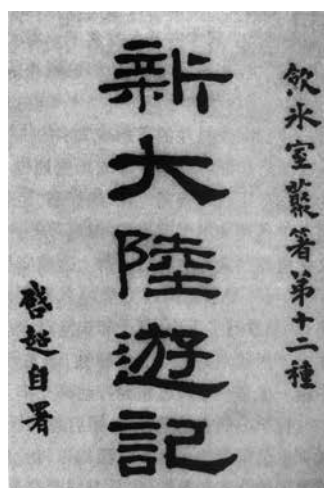 飲氷室叢著第十二種
新大陸遊記
啓超自署